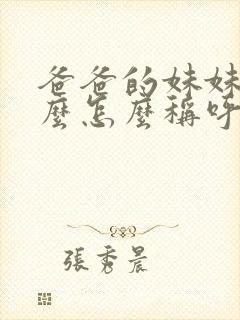 爸爸的妹妹
麼怎麼稱呼
張秀晨